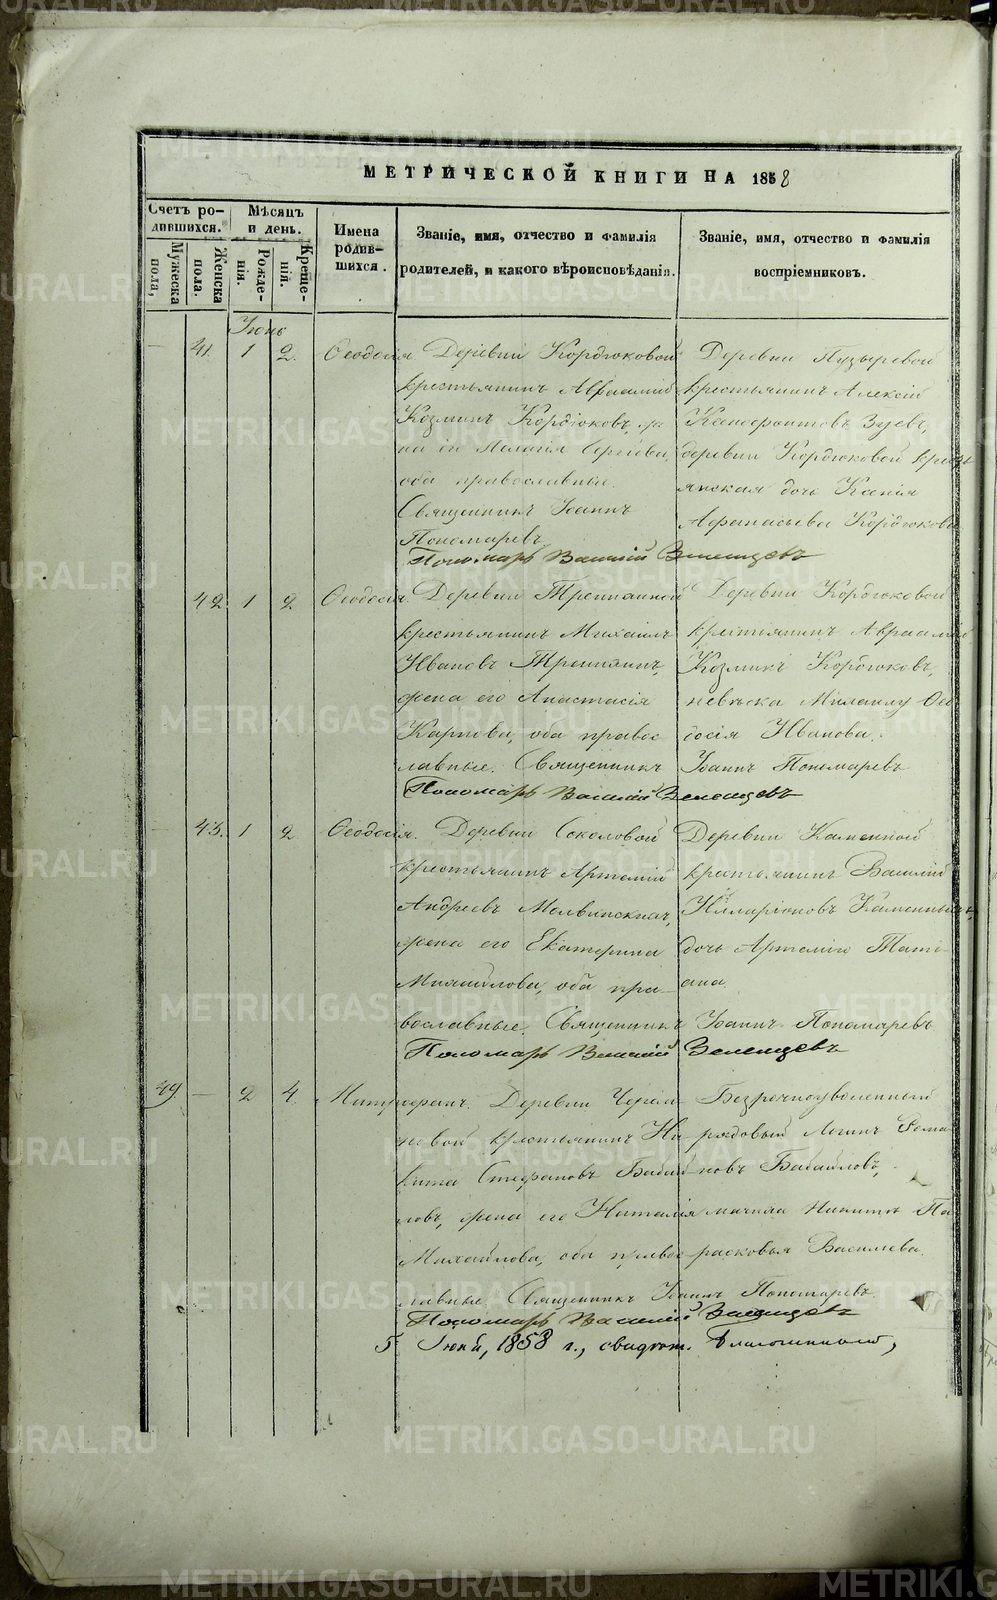 МЕТРИЧЕСКОЙ КНИГИ НА 1858
Счетъ ро-
дившихся.
Мѣсяцъ
и день.
Имена
родив-
шихся.
Званіе, имя, отчество и фамилія
родителей, и какого вѣроисповѣданія.
Званіе, имя, отчество и фамилія
воспріемниковъ.
Мужеска
пола,
Женска
пола.
Рожде-
нія.
Креще-
нія.
Іюнь
41. 1 2. Ѳеодосія
Деревни Кордюковой
крестьянинъ Авраамій
Козминъ Кордюковъ, же
на его Пелагія Сергіева,
оба православные.
Священникъ Іоаннъ
Пономаревъ
Пономарь Василій Зеленцовъ
Деревни Пузыревой
крестьянинъ Алексій
Зуевъ,
деревни Кордюковой крестъ
янская дочь Ксенія
Афанасьева Кордюкова
42. 1 2 Ѳеодосія.
Деревни
крестьянинъ Михаилъ
Ивановъ
жена его Анастасія
Карпова, оба правос
лавные. Священникъ Іоаннъ Пономаревъ
Пономарь Василій Зеленцовъ
Деревни Кордюковой
крестьянинъ Авраамій
Козминъ Кордюковъ,
невѣстка Михаилу Ѳео
досія Иванова.
43. 1 2 Ѳеодосія.
Деревни Соколовой
крестьянинъ Артемій
Андреевъ
жена его Екатерина
Михайлова, оба пра
вославные. Священникъ Іоаннъ Пономаревъ
Пономарь Василій Зеленцовъ
Деревни Каменной
крестьянинъ Василій
Илларіоновъ Каменныхъ,
дочь Артемія Тати-
ана
49. — 2 4. Митрофанъ.
Деревни Черем
новой крестьянинъ Ни
кита Стефановъ Бабай
ловъ, жена его Наталія
Михайлова, оба правос
лавные. Священникъ Іоаннъ Пономаревъ.
Пономарь Василій Зеленцовъ
Безсрочноуволенный
рядовый Логинъ Рома-
новъ Бабайловъ,
мачиха Никиты Па
расковья Васильева.
5 Іюня, 1858 г., свидѣт. Благочинный,
METRIKI.GASO-URAL.RU